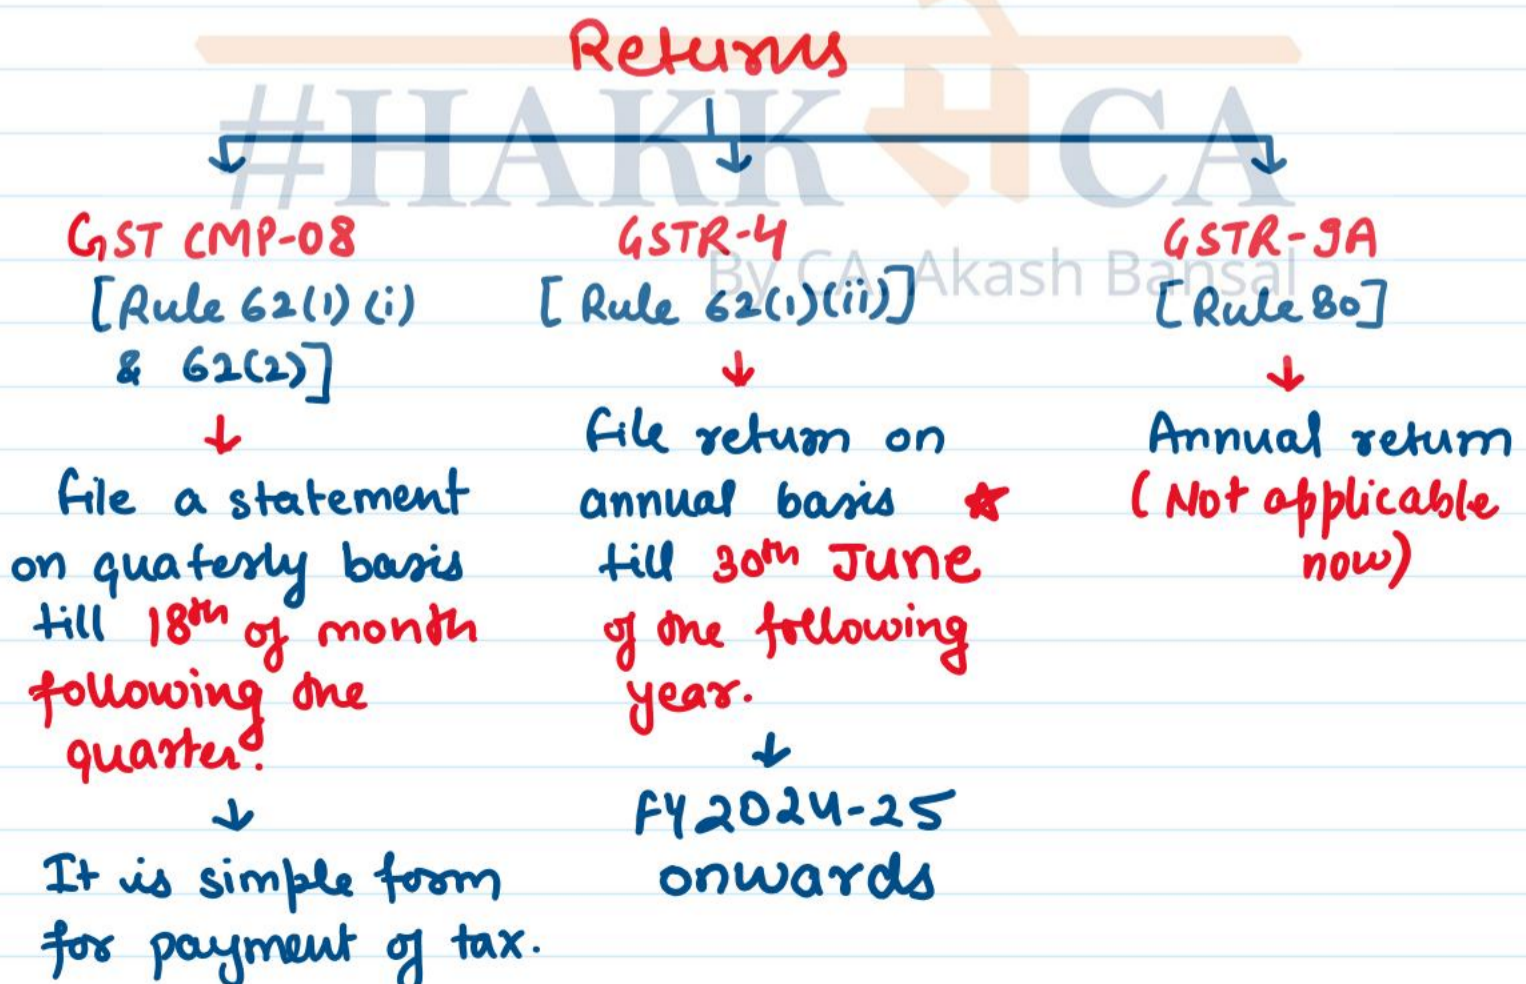 Returns
#HAKK से CA
By CA. Akash Bansal
GST CMP-08
[Rule 62(1)(i)
& 62(2)]
file a statement
on quaterly basis
till 18th of month
following the
quarter.
It is simple form
for payment of tax.
GSTR-4
[Rule 62(1)(ii)]
file return on
annual basis
till 30th June
of the following
year.
FY 2024-25
onwards
GSTR-9A
[Rule 80]
Annual return
(Not applicable
now)